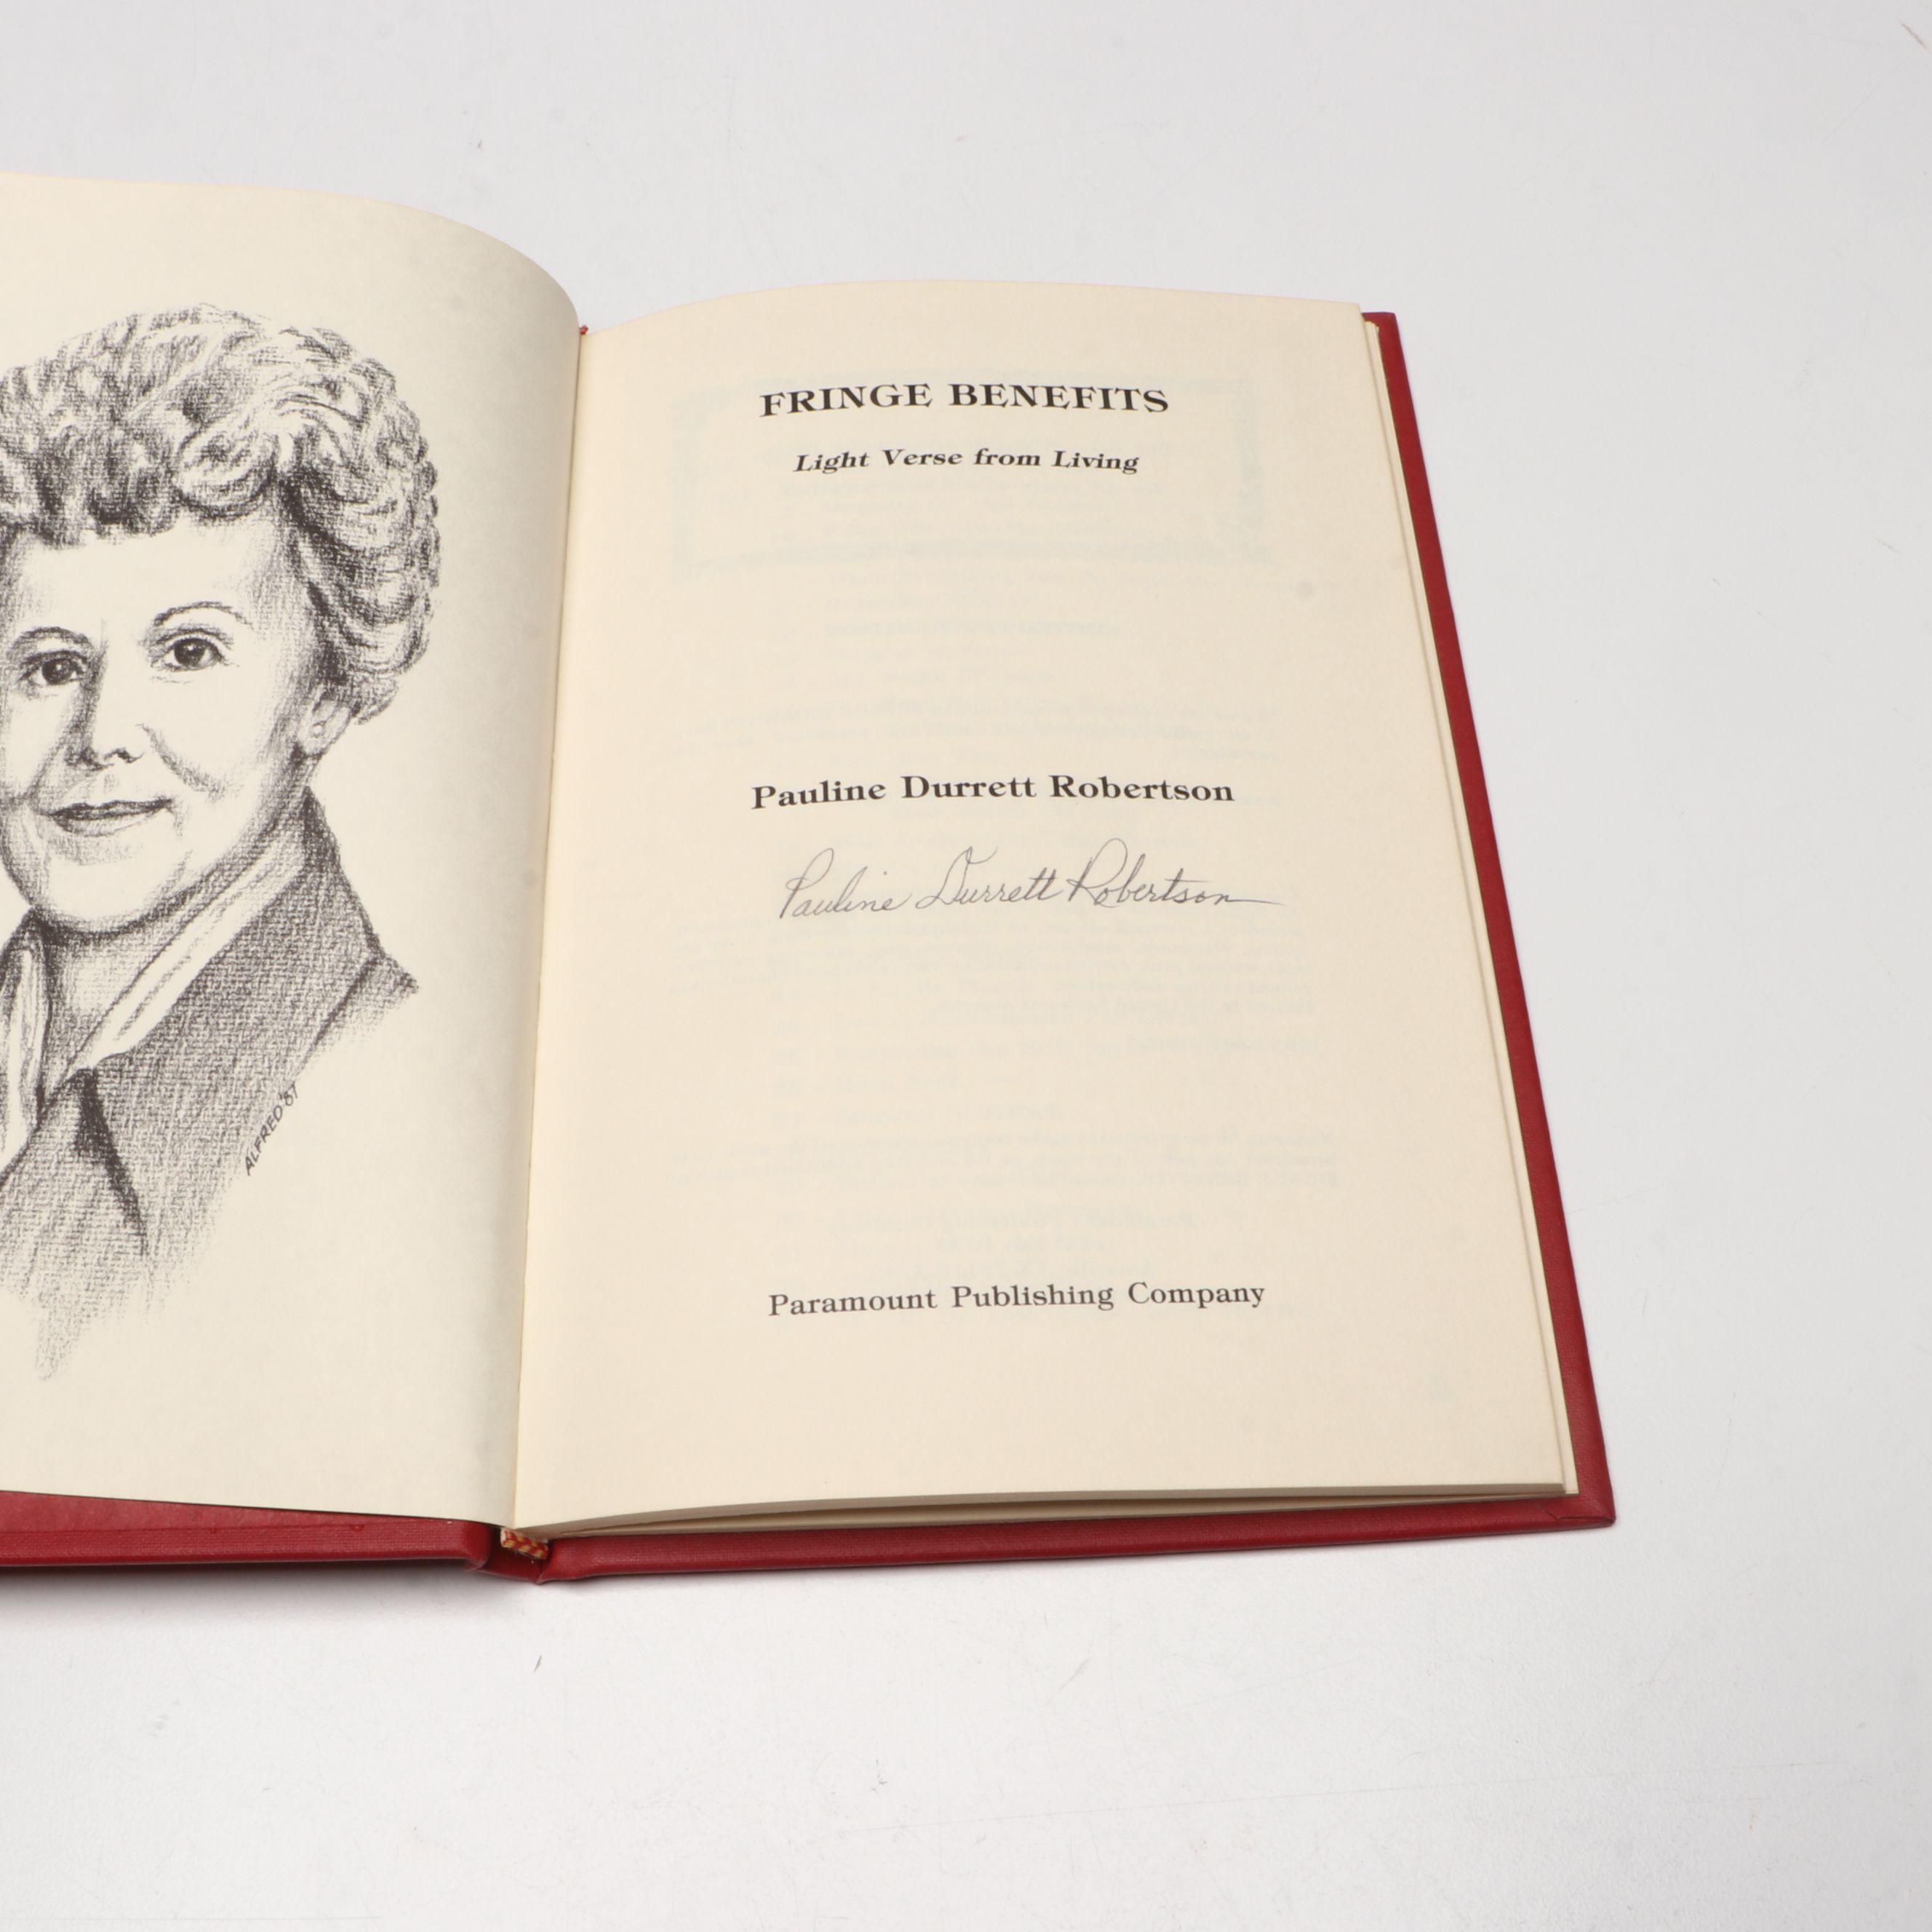 ALFRED '87
FRINGE BENEFITS
Light Verse from Living
Pauline Durrett Robertson
Pauline Durrett Robertson
Paramount Publishing Company